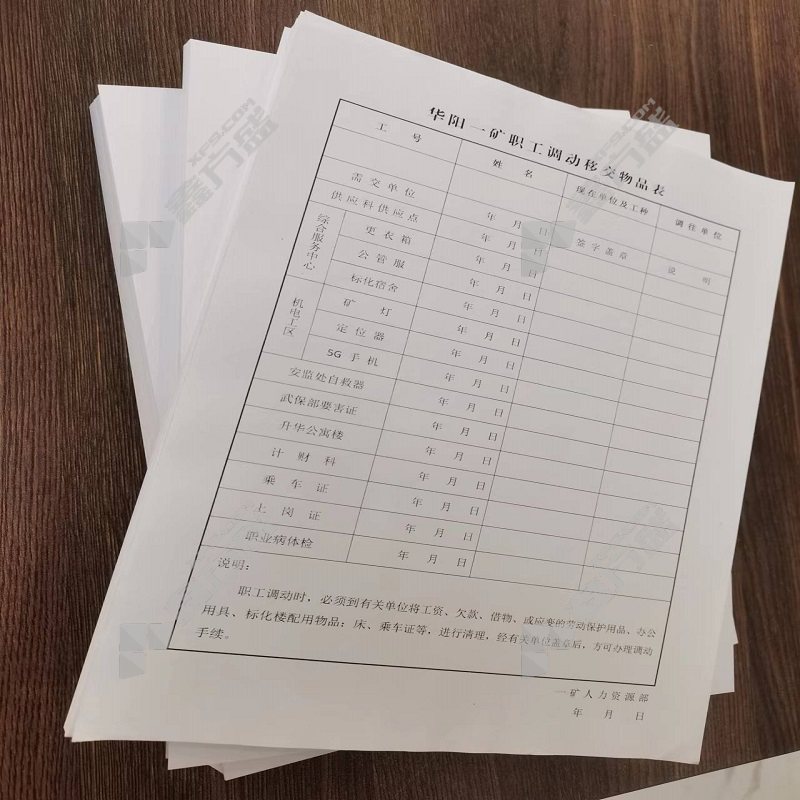 华阳一矿职工调动移交物品表
工 号 姓 名 现在单位及工种 调往单位
需交单位 年 月 日 签字盖章 说 明
供应科供应点 年 月 日
综合服务中心 更衣箱 年 月 日
公管服 年 月 日
标化宿舍 年 月 日
机电工区 矿 灯 年 月 日
定位器 年 月 日
5G手机 年 月 日
安监处自救器 年 月 日
武保部要害证 年 月 日
升华公寓楼 年 月 日
计 财 科 年 月 日
乘 车 证 年 月 日
上 岗 证 年 月 日
职业病体检 年 月 日
说明：
职工调动时，必须到有关单位将工资、欠款、借物、或应变的劳动保护用品、办公
用具、标化楼配用物品：床、乘车证等，进行清理，经有关单位盖章后，方可办理调动
手续。
一矿人力资源部
年 月 日
鑫方盛
XFS.COM